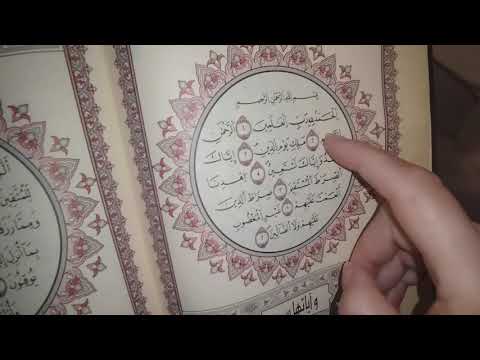 بِسْمِ اللَّهِ الرَّحْمَٰنِ الرَّحِيمِ
الْحَمْدُ لِلَّهِ رَبِّ الْعَٰلَمِينَ ١ الرَّحْمَٰنِ
الرَّحِيمِ ٢ مَلِكِ يَوْمِ الدِّينِ ٣ إِيَّاكَ
نَعْبُدُ وَإِيَّاكَ نَسْتَعِينُ ٤ اهْدِنَا
الصِّرَٰطَ الْمُسْتَقِيمَ ٥ صِرَٰطَ الَّذِينَ
أَنْعَمْتَ عَلَيْهِمْ ٦ غَيْرِ الْمَغْضُوبِ
عَلَيْهِمْ وَلَا الضَّالِّينَ ٧
وءاياتها
يُوقِنُونَ